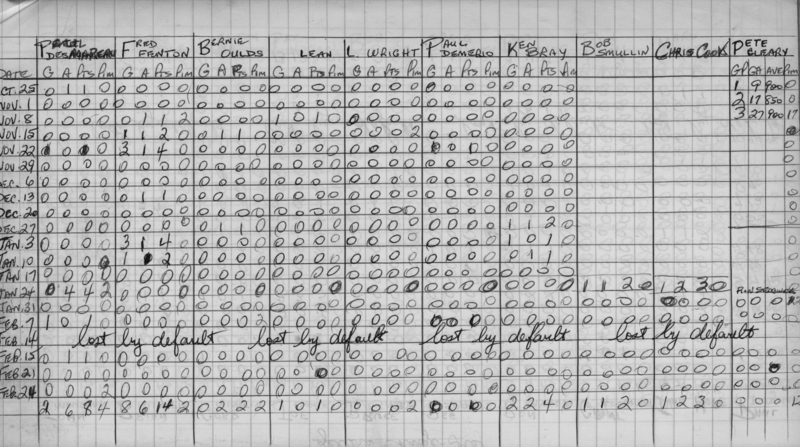 FRED BERNIE PAUL KEN BOB PETE
FENTON OULDS LEAH L WRIGHT DEMERIO BRAY SMULLIN CHRIS COOK CLEARY
DATE G A Pts Pim G A Pts Pim G A Pts Pim G A Pts Pim G A Pts Pim G A Pts Pim G A Pts Pim GP GA AVE Pim
OCT. 25 0 1 1 0 0 0 0 0 0 0 0 0 0 0 0 0 0 0 0 0 0 0 0 0 0 0 0 0 1 9 900 0
NOV. 1 0 0 0 0 0 0 0 0 0 0 0 0 0 0 0 0 0 0 0 0 0 0 0 0 0 0 0 0 2 17 850 0
NOV. 8 0 0 0 0 0 1 1 2 0 0 0 0 1 0 1 0 0 0 0 0 0 0 0 0 0 0 0 0 3 27 900 17
NOV. 15 0 0 0 0 1 1 2 0 0 1 1 0 0 0 0 0 0 0 0 2 0 0 0 0 0 0 0 0
NOV. 22 0 0 3 1 4 0 0 0 0 0 0 0 0 0 0 0 0 0 0 0 0 0 0 0 0 0
NOV. 29 0 0 0 0 0 0 0 0 0 0 0 0 0 0 0 0 0 0 0 0 0 0 0 0 0 0 0 0 0
DEC. 6 0 0 0 0 0 0 0 0 0 0 0 0 0 0 0 0 0 0 0 0 0 0 0 0 0 0 0 0 0
DEC. 13 0 0 0 0 0 1 1 0 0 0 0 0 0 0 0 0 0 0 0 0 0 0 0 0 0 0 0 0 0
DEC. 20 0 0 0 0 0 0 0 0 0 0 0 0 0 0 0 0 0 0 0 0 0 0 0 0 0 0 0 0 0
DEC 27 0 0 0 0 0 0 0 0 0 1 1 0 0 0 0 0 0 0 0 0 0 0 0 0 1 1 2 0 0
JAN. 3 0 0 0 0 3 1 4 0 0 0 0 0 0 0 0 0 0 0 0 0 0 0 0 0 1 0 1 0 0
JAN. 10 0 0 0 0 1 2 0 0 0 0 0 0 0 0 0 0 0 0 0 0 0 0 0 0 0 1 1 0 0
JAN 17 0 0 0 0 0 0 0 0 0 0 0 0 0 0 0 0 0 0 0 0 0 0 0 0 0 0 0 0
JAN 24 0 4 4 2 0 0 0 0 0 0 0 0 0 0 0 0 0 0 0 0 0 0 0 0 0 0 0 0 1 1 2 0 1 2 3 0
JAN. 31 0 0 0 0 0 0 0 0 0 0 0 0 0 0 0 0 0 0 0 0 0 0 0 0 0 0 0 0 0 0 0 0 0 0 0 0 0 0 0
FEB. 7 1 0 1 0 0 0 0 0 0 0 0 2 0 0 0 0 0 0 0 0 0 0 0 0 0 0 0 0 0 0 0 0 0 0 0 0 0 0 0 0
FEB. 14 lost by default lost by default lost by default lost by default
FEB. 15 0 1 1 0 0 0 0 0 0 0 0 0 0 0 0 0 0 0 0 0 0 0 0 0 0 0 0 0 0 0 0 0 0 0 0 0 0 0 0 0
FEB. 21 0 0 0 0 0 0 0 0 0 0 0 0 0 0 0 0 0 0 0 0 0 0 0 0 0 0 0 0 0 0 0 0 0 0 0 0 0 0 0
FEB. 24 0 0 0 2 0 0 0 0 0 0 0 0 0 0 0 0 0 0 0 0 0 0 0 0 0 0 0 0 0 0 0 0 0 0 0 0 0 0 0 0
2 6 8 4 8 6 14 2 0 2 2 2 1 0 1 0 0 0 0 2 0 0 0 0 2 2 4 0 1 1 2 0 1 2 3 0 0 0 0